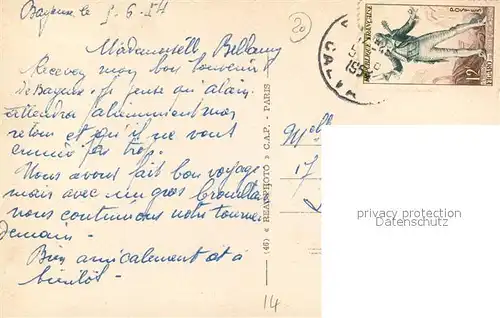 Bayeux le 5-6-54
Mademoiselle Bellamy
Recevez mon bon souvenir
de Bayeux. Je pense qu'alain
attendra patiemment mon
retour et qu'il ne vous
ennuie pas trop.
Nous avons fait bon voyage
mais avec un gros brouillard
nous continuons notre tournée
demain-
Bien amicalement et à
bientôt-
20
(46) « REAL-PHOTO » C.A.P. - PARIS
14
CALVA
REPUBLIQUE FRANÇAISE
POSTES
12F
Melle
17
privacy protection
Datenschutz